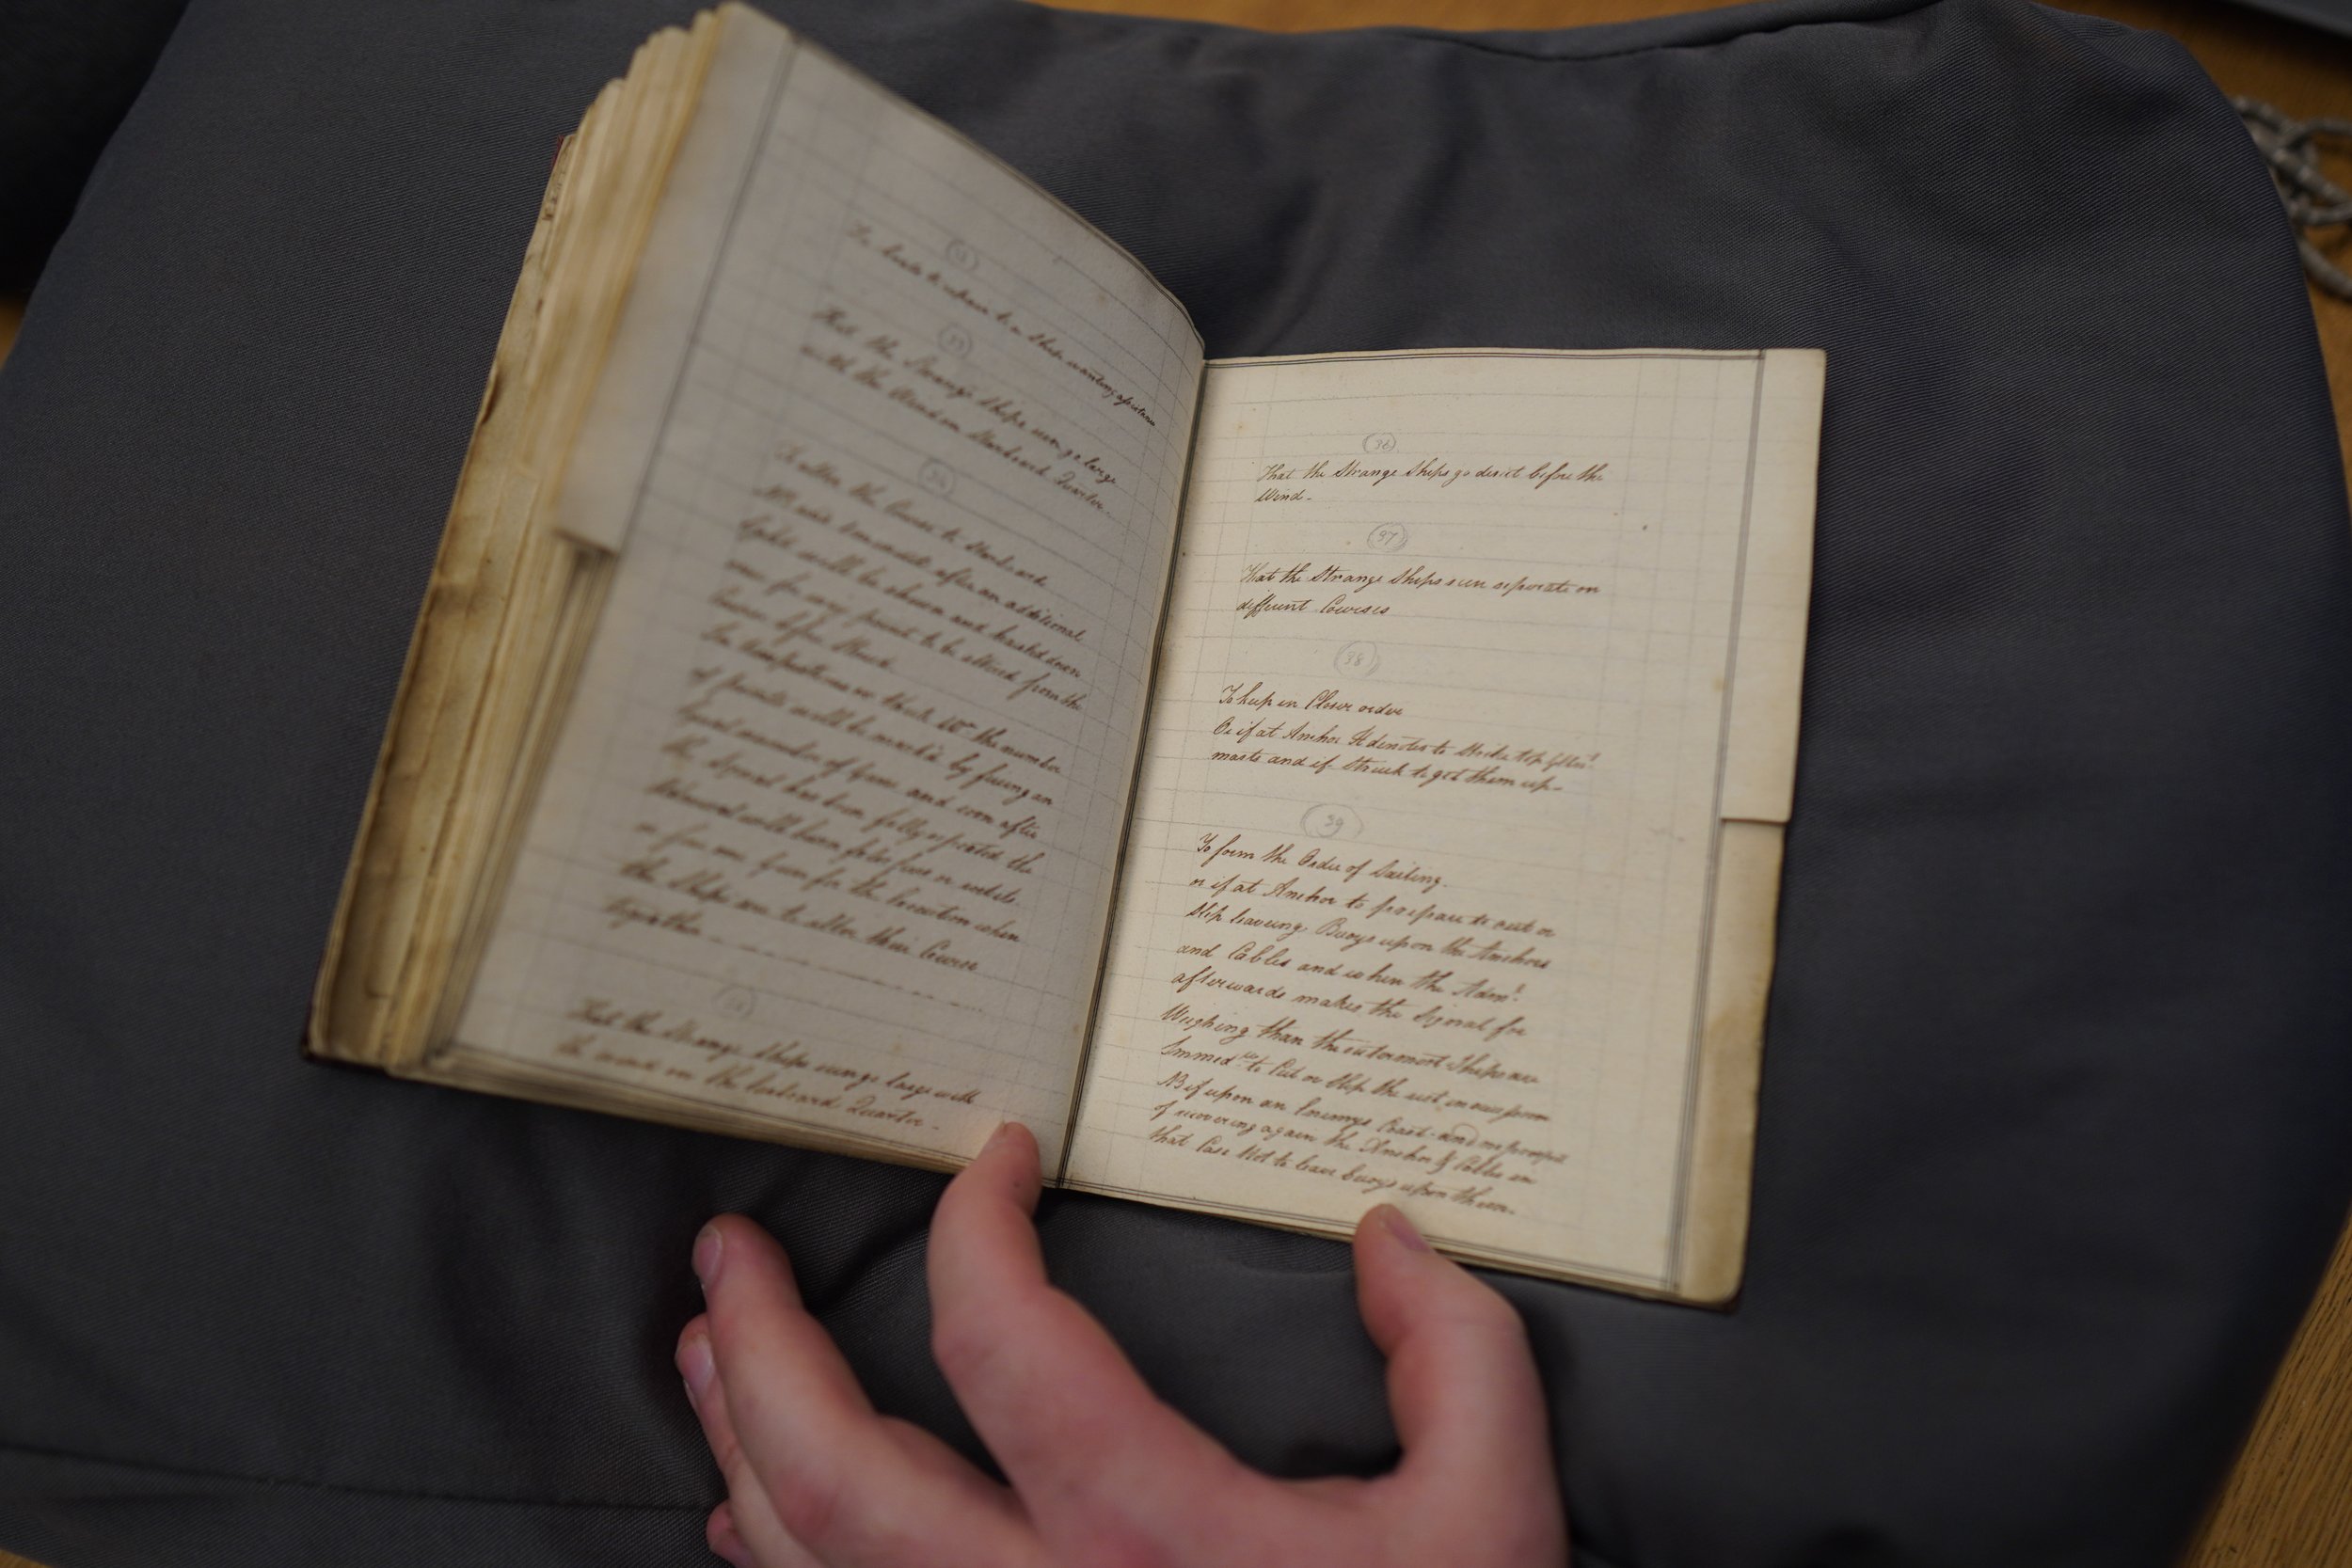 To denote to a Ship wanting assistance
33
That the Strange Ships seen go large
with the Wind on Starboard Quarter.
34
To alter the Course to Starboard
NB and immediately after an additional
light will be shewn and hauled down
one for every point to be altered from the
Course before Steer'd.
In tempestuous or thick Wr. the number
of points will be mark'd by firing an
equal number of Guns and soon after
the signal has been fully repeated the
Admiral will burn false fires or rockets
or fire one Gun for the Execution when
the Ships are to alter their Course
together
That the Strange Ships seen go large with
the wind on the Larboard Quarter.
36
That the Strange Ships go direct before the
Wind.
37
That the Strange Ships seen separate on
different Courses
38
To keep in Closer order
Or if at Anchor It denotes to Strike top Gallt.
masts and if Struck to get them up.
39
To form the Order of Sailing.
or if at Anchor to prepare to cut or
slip leaving Buoys upon the Anchors
and Cables and when the Adml.
afterwards makes the Signal for
Weighing than the outermost Ships are
Immedly. to Cut or Slip the rest in
NB if upon an Enemys Coast and no prospect
of recovering again the Anchor & Cables in
that Case Not to leave buoys upon them.